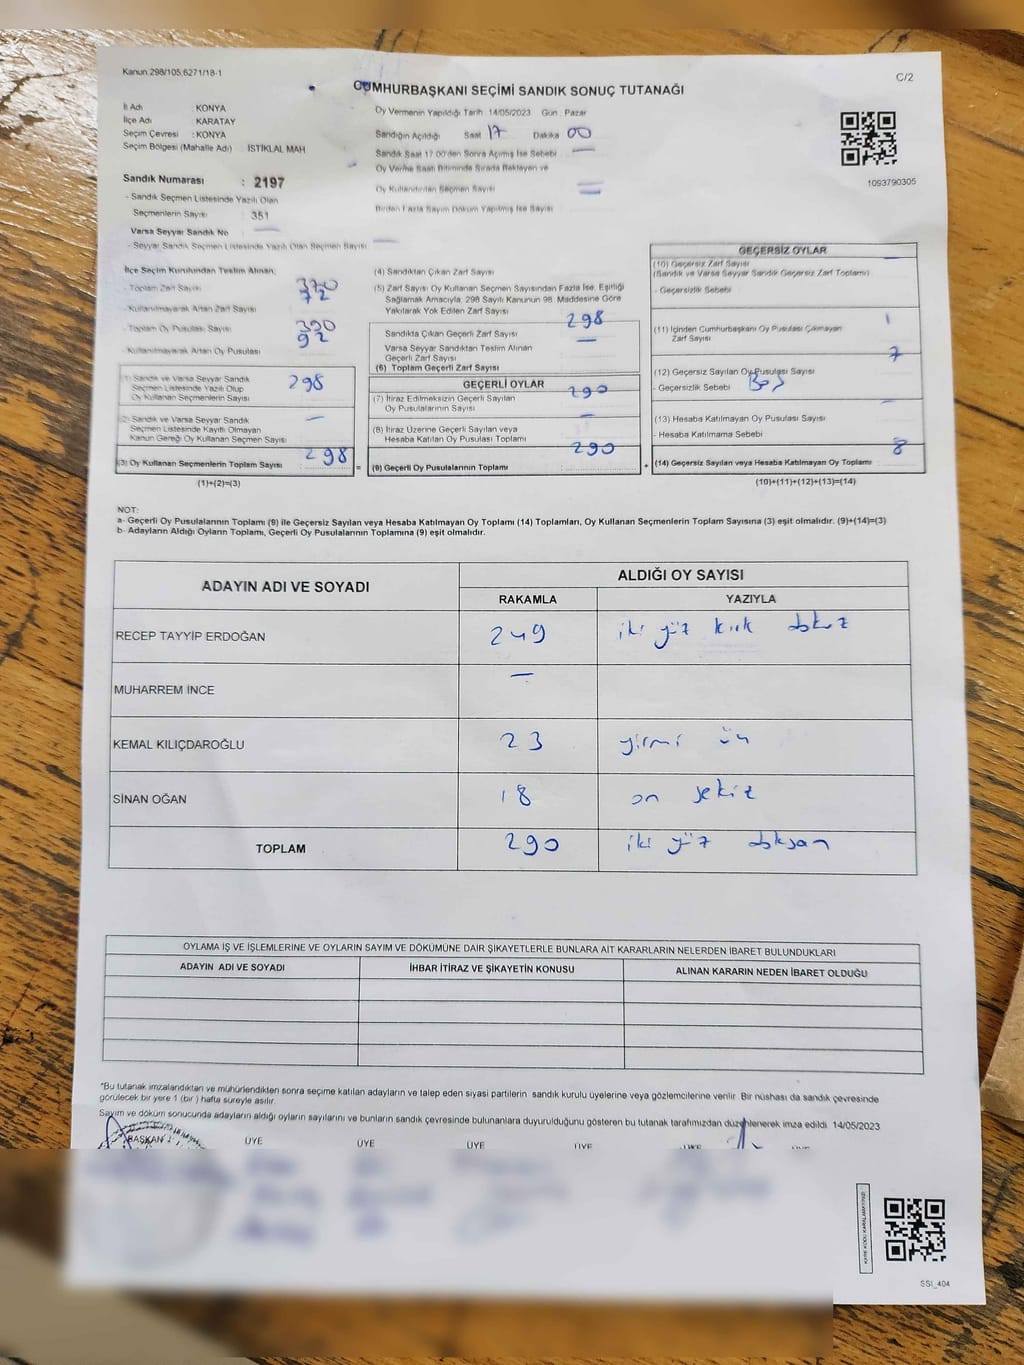 Kanun:298/105;6271/18-1
C/2
CUMHURBAŞKANI SEÇİMİ SANDIK SONUÇ TUTANAĞI
İl Adı : KONYA
İlçe Adı : KARATAY
Seçim Çevresi : KONYA
Seçim Bölgesi (Mahalle Adı) : İSTİKLAL MAH
Oy Vermenin Yapıldığı Tarih 14/05/2023 Gün : Pazar
Sandığın Açıldığı Saat 17 Dakika 00
Sandık Saat 17.00'den Sonra Açılmış İse Sebebi —
Oy Verme Saati Bitiminde Sırada Bekleyen ve
Oy Kullandırılan Seçmen Sayısı —
Birden Fazla Sayım Döküm Yapılmış İse Sayısı —
1093790305
Sandık Numarası : 2197
- Sandık Seçmen Listesinde Yazılı Olan
Seçmenlerin Sayısı : 351
Varsa Seyyar Sandık No —
- Seyyar Sandık Seçmen Listesinde Yazılı Olan Seçmen Sayısı —
İlçe Seçim Kurulundan Teslim Alınan;
- Toplam Zarf Sayısı 370
- Kullanılmayarak Artan Zarf Sayısı 72
- Toplam Oy Pusulası Sayısı 390
- Kullanılmayarak Artan Oy Pusulası 92
(1) Sandık ve Varsa Seyyar Sandık
Seçmen Listesinde Yazılı Olup
Oy Kullanan Seçmenlerin Sayısı 298
(2) Sandık ve Varsa Seyyar Sandık
Seçmen Listesinde Kayıtlı Olmayan
Kanun Gereği Oy Kullanan Seçmen Sayısı —
(3) Oy Kullanan Seçmenlerin Toplam Sayısı 298
(1)+(2)=(3)
=
(4) Sandıktan Çıkan Zarf Sayısı
(5) Zarf Sayısı Oy Kullanan Seçmen Sayısından Fazla İse, Eşitliği
Sağlamak Amacıyla, 298 Sayılı Kanunun 98. Maddesine Göre
Yakılarak Yok Edilen Zarf Sayısı
Sandıkta Çıkan Geçerli Zarf Sayısı 298
Varsa Seyyar Sandıktan Teslim Alınan
Geçerli Zarf Sayısı —
(6) Toplam Geçerli Zarf Sayısı
GEÇERLİ OYLAR
(7) İtiraz Edilmeksizin Geçerli Sayılan
Oy Pusulalarının Sayısı 290
(8) İtiraz Üzerine Geçerli Sayılan veya
Hesaba Katılan Oy Pusulası Toplamı —
(9) Geçerli Oy Pusulalarının Toplamı 290
+
GEÇERSİZ OYLAR
(10) Geçersiz Zarf Sayısı
(Sandık ve Varsa Seyyar Sandık Geçersiz Zarf Toplamı) —
- Geçersizlik Sebebi
(11) İçinden Cumhurbaşkanı Oy Pusulası Çıkmayan
Zarf Sayısı 1
(12) Geçersiz Sayılan Oy Pusulası Sayısı 7
- Geçersizlik Sebebi Boş
(13) Hesaba Katılmayan Oy Pusulası Sayısı —
- Hesaba Katılmama Sebebi
(14) Geçersiz Sayılan veya Hesaba Katılmayan Oy Toplamı 8
(10)+(11)+(12)+(13)=(14)
NOT:
a- Geçerli Oy Pusulalarının Toplamı (9) ile Geçersiz Sayılan veya Hesaba Katılmayan Oy Toplamı (14) Toplamları, Oy Kullanan Seçmenlerin Toplam Sayısına (3) eşit olmalıdır. (9)+(14)=(3)
b- Adayların Aldığı Oyların Toplamı, Geçerli Oy Pusulalarının Toplamına (9) eşit olmalıdır.
ADAYIN ADI VE SOYADI
ALDIĞI OY SAYISI
RAKAMLA YAZIYLA
RECEP TAYYİP ERDOĞAN 249 iki yüz kırk dokuz
MUHARREM İNCE —
KEMAL KILIÇDAROĞLU 23 yirmi üç
SİNAN OĞAN 18 on sekiz
TOPLAM 290 iki yüz doksan
OYLAMA İŞ VE İŞLEMLERİNE VE OYLARIN SAYIM VE DÖKÜMÜNE DAİR ŞİKAYETLERLE BUNLARA AİT KARARLARIN NELERDEN İBARET BULUNDUKLARI
ADAYIN ADI VE SOYADI İHBAR İTİRAZ VE ŞİKAYETİN KONUSU ALINAN KARARIN NEDEN İBARET OLDUĞU
*Bu tutanak imzalandıktan ve mühürlendikten sonra seçime katılan adayların ve talep eden siyasi partilerin sandık kurulu üyelerine veya gözlemcilerine verilir. Bir nüshası da sandık çevresinde
görülecek bir yere 1 (bir) hafta süreyle asılır.
Sayım ve döküm sonucunda adayların aldığı oyların sayılarını ve bunların sandık çevresinde bulunanlara duyurulduğunu gösteren bu tutanak tarafımızdan düzenlenerek imza edildi. 14/05/2023
BAŞKAN ÜYE ÜYE ÜYE ÜYE
SSİ_404